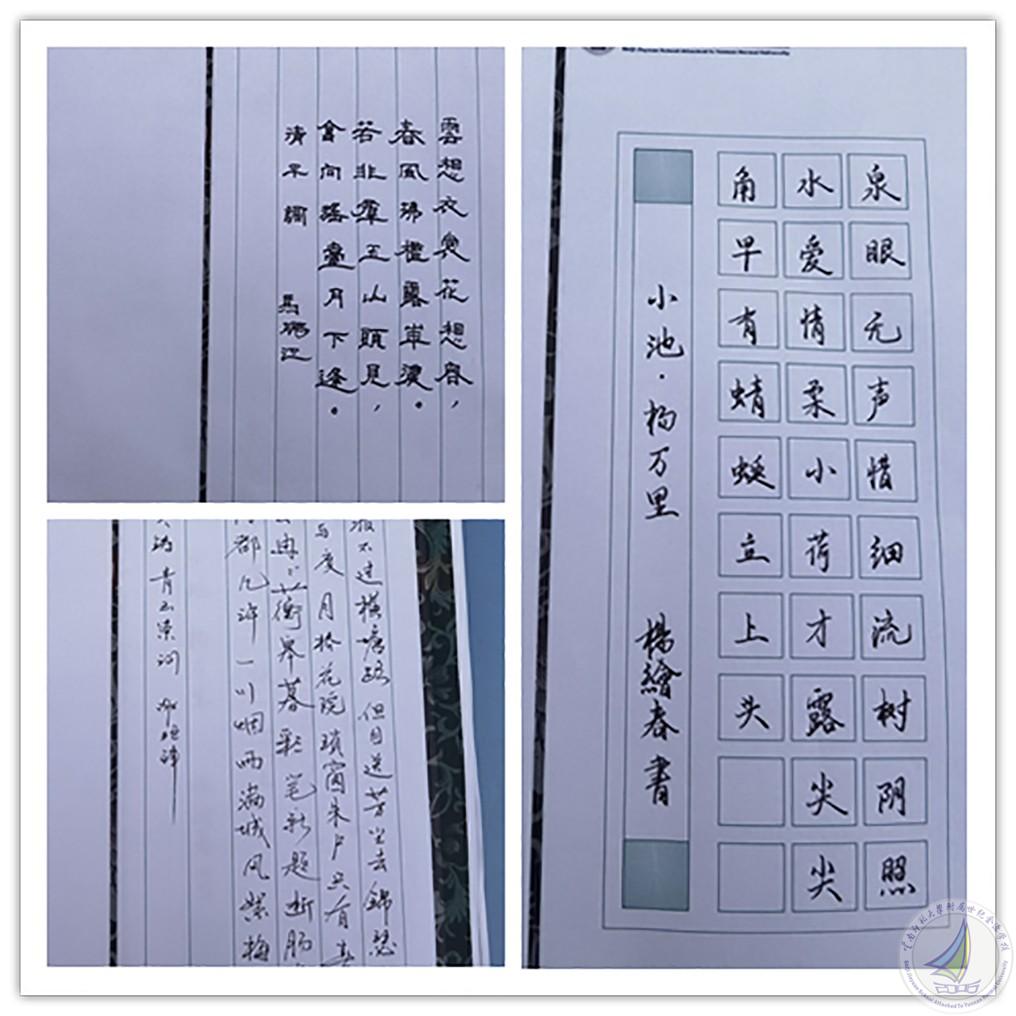 雲想衣裳花想容，
春風拂檻露華濃。
若非羣玉山頭見，
會向瑤臺月下逢。
清平調
School Attached To Yunnan Normal University
泉眼无声惜细流树阴照
水爱情柔小荷才露尖尖
角早有蜻蜓立上头
小池·杨万里 楊繪春書
不过横塘路但目送芳尘去錦瑟
与度月桥花院琐窗朱户只有春
冉冉蘅皋暮彩笔新题断肠
都几许一川烟雨满城风絮梅
青玉案词
云南师范大學附属世纪金源学校